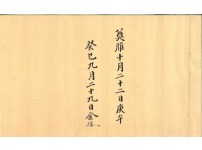 箕雁十月二十二日庚午
癸巳九月二十九日